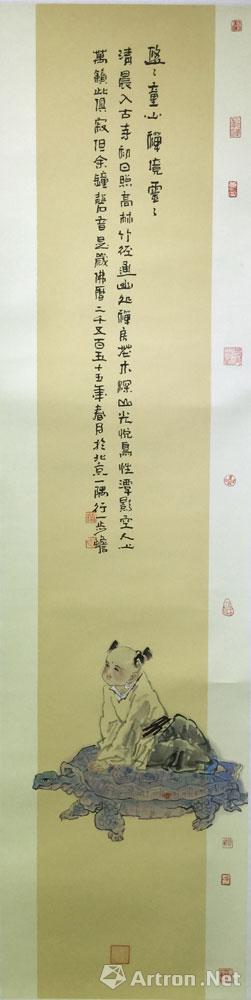 〻童心禪境靈〻
清晨入古寺初日照高林竹徑通幽処禪房花木深山光悅鳥性潭影空人心
萬籟此俱寂但余鐘磬音是歲佛曆二千五百五十五年春月於北京一隅行一步
Artron.Net